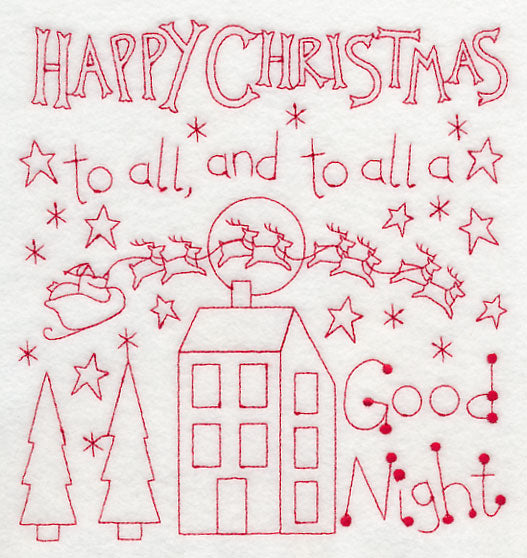 HAPPY CHRISTMAS
to all, and to all a
Good
Night